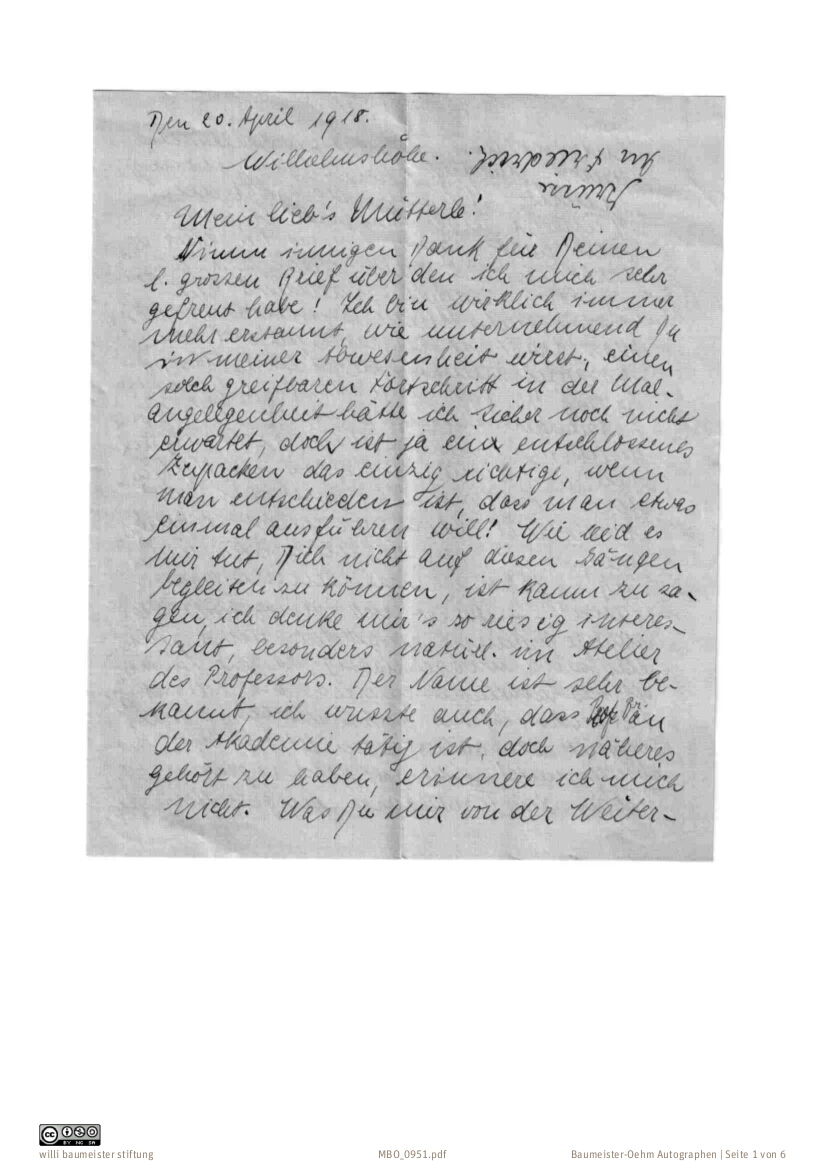 Den 20. April 1918.
Wilhelmshöhe.
Mein lieb's Mütterle!
Nimm innigen Dank für Deinen
l. grossen Brief über den ich mich sehr
gefreut habe! Ich bin wirklich immer
mehr erstaunt, wie unternehmend Du
in meiner Abwesenheit wirst, einen
solch greifbaren Fortschritt in der Mal-
angelegenheit hätte ich sicher noch nicht
erwartet, doch ist ja ein entschlossenes
Zupacken das einzig richtige, wenn
man entschieden ist, dass man etwas
einmal ausführen will! Wie leid es
mir tut, Dich nicht auf diesen Gängen
begleiten zu können, ist kaum zu sa-
gen, ich denke mir's so riesig interes-
sant, besonders natürl. im Atelier
des Professors. Der Name ist sehr be-
kannt, ich wusste auch, dass an
der Akademie tätig ist, doch näheres
gehört zu haben, erinnere ich mich
nicht. Was Du mir von der Weiter-
willi baumeister stiftung
MBO_0951.pdf
Baumeister-Oehm Autographen | Seite 1 von 6